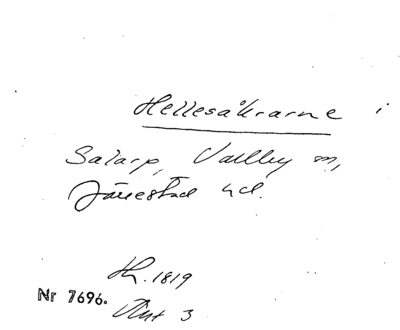 Hellesåkrarne i
Salarp, Vallby sn,
Järrestad hd.
Nr 7696. 1819
3